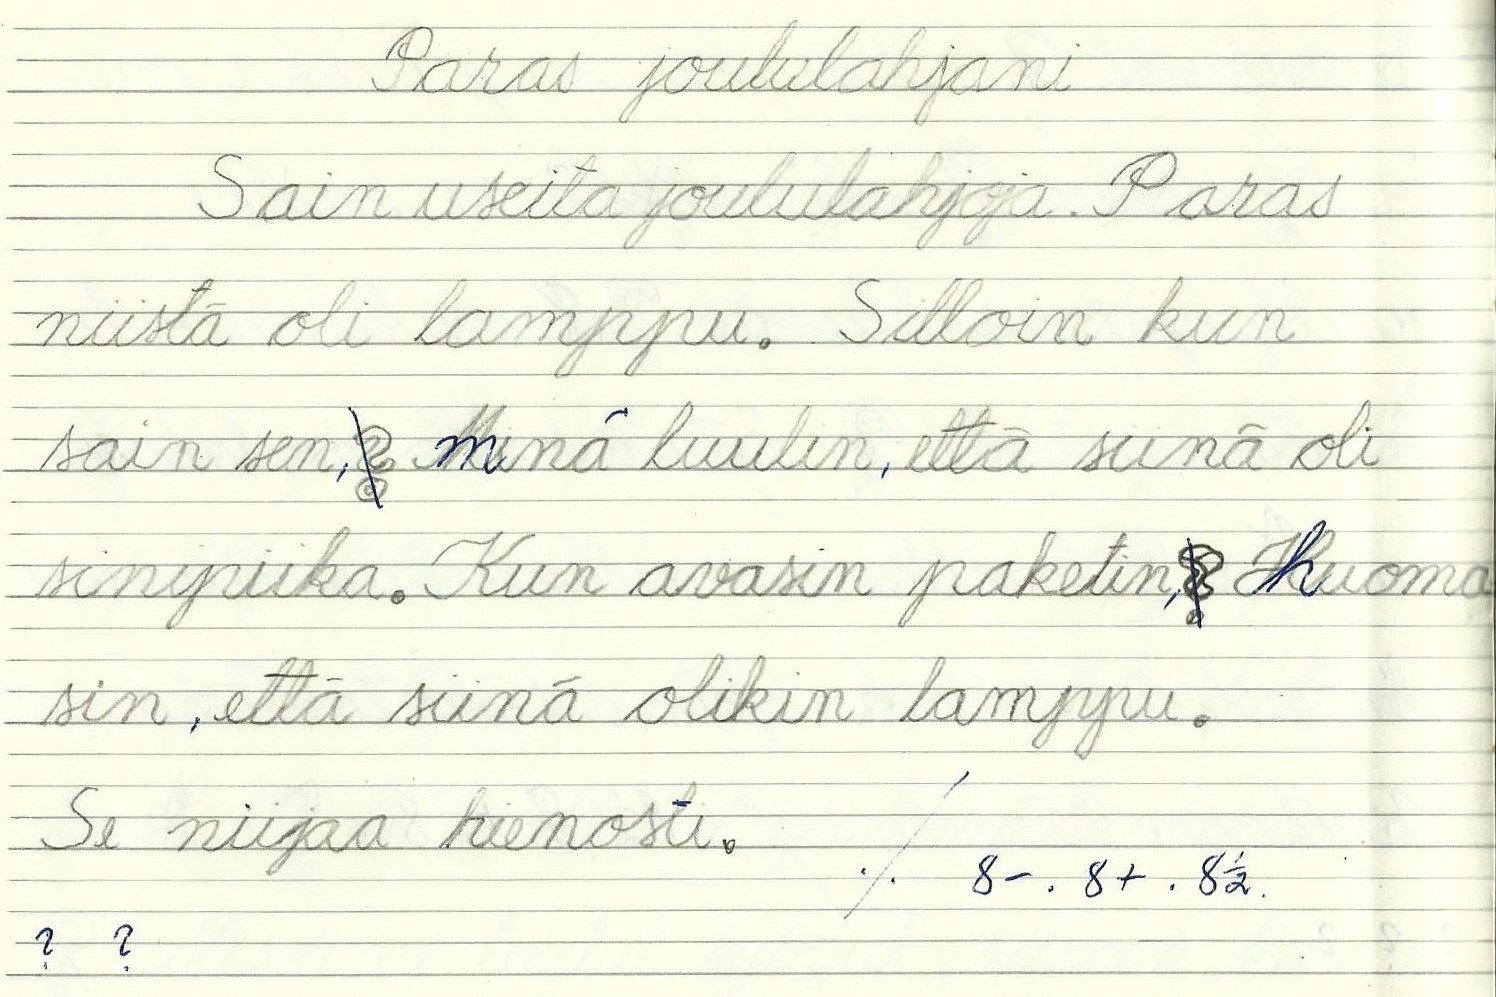 Paras joululahjani
Sain useita joululahjoja. Paras
niistä oli lamppu. Silloin kun
sain sen, minä luulin, että siinä oli
sinipiika. Kun avasin paketin, huoma
sin, että siinä olikin lamppu.
Se niijaa hienosti.
8- . 8+ . 8½.
? ?